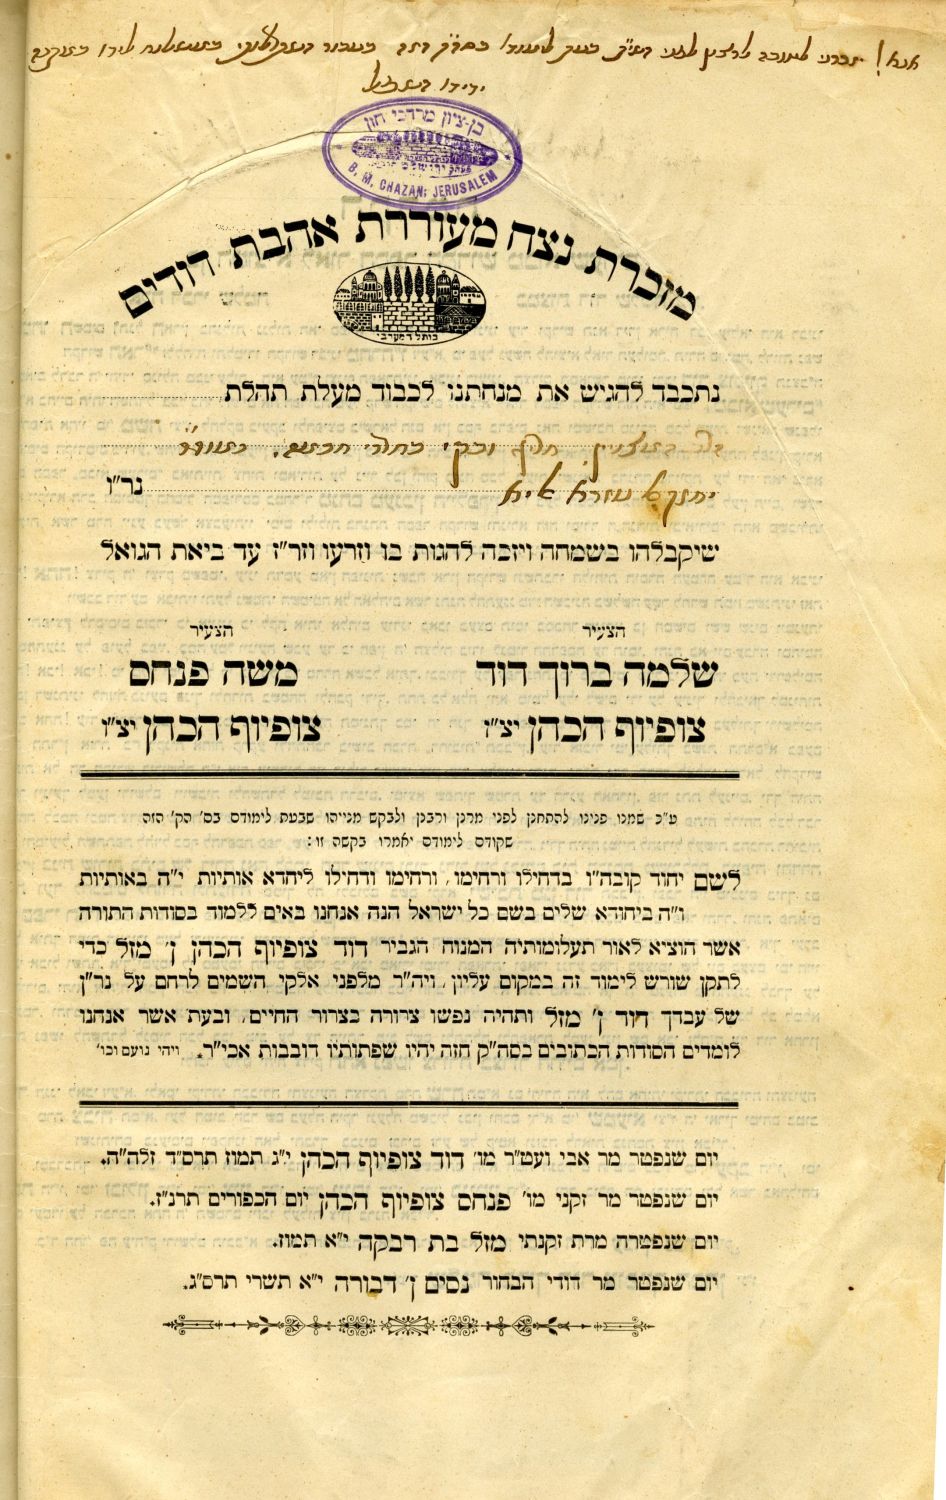 בן-ציון מרדכי חזן
B. M. CHAZAN; JERUSALEM
מזכרת נצח מעוררת אהבת דודים
כותל המערבי
נתכבד להגיש את מנחתנו לכבוד מעלת תהלת
נר"ו
שיקבלהו בשמחה ויזכה להגות בו וזרעו וזר"ז עד ביאת הגואל
הצעיר
שלמה ברוך דוד
צופיוף הכהן יצ"ו
הצעיר
משה פנחס
צופיוף הכהן יצ"ו
ע"כ שמנו פנינו להתחנן לפני מרנן ורבנן ולבקש מנייהו שבעת לימודם בס' הק' הזה
שקודם לימודם יאמרו בקשה זו:
לשם יחוד קובה"ו בדחילו ורחימו, ורחימו ודחילו ליחדא אותיות י"ה באותיות
ו"ה ביחודא שלים בשם כל ישראל הנה אנחנו באים ללמוד בסודות התורה
אשר הוציא לאור תעלומותיה המנוח הגביר דוד צופיוף הכהן ן' מזל כדי
לתקן שורש לימוד זה במקום עליון, ויה"ר מלפני אלקי השמים לרחם על נר"ן
של עבדך דוד ן' מזל ותהיה נפשו צרורה בצרור החיים, ובעת אשר אנחנו
לומדים הסודות הכתובים בסה"ק הזה יהיו שפתותיו דובבות אכי"ר. ויהי נועם וכו'
יום שנפטר מר אבי ועט"ר מו' דוד צופיוף הכהן י"ג תמוז תרס"ד זלה"ה.
יום שנפטר מר זקני מו' פנחס צופיוף הכהן יום הכפורים תרנ"ז.
יום שנפטרה מרת זקנתי מזל בת רבקה י"א תמוז.
יום שנפטר מר דודי הבחור נסים ן' דבורה י"א תשרי תרס"ג.